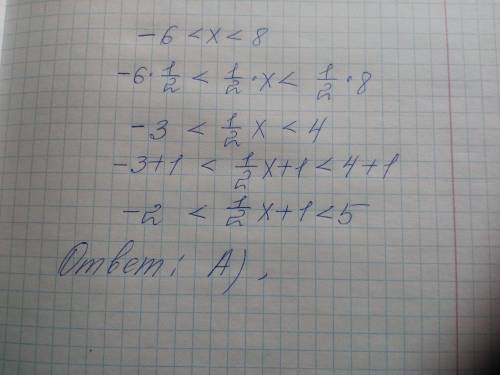 -6 < x < 8
-6 · 1/2 < 1/2 · x < 1/2 · 8
-3 < 1/2 x < 4
-3+1 < 1/2 x+1 < 4+1
-2 < 1/2 x+1 < 5
Ответ: А).